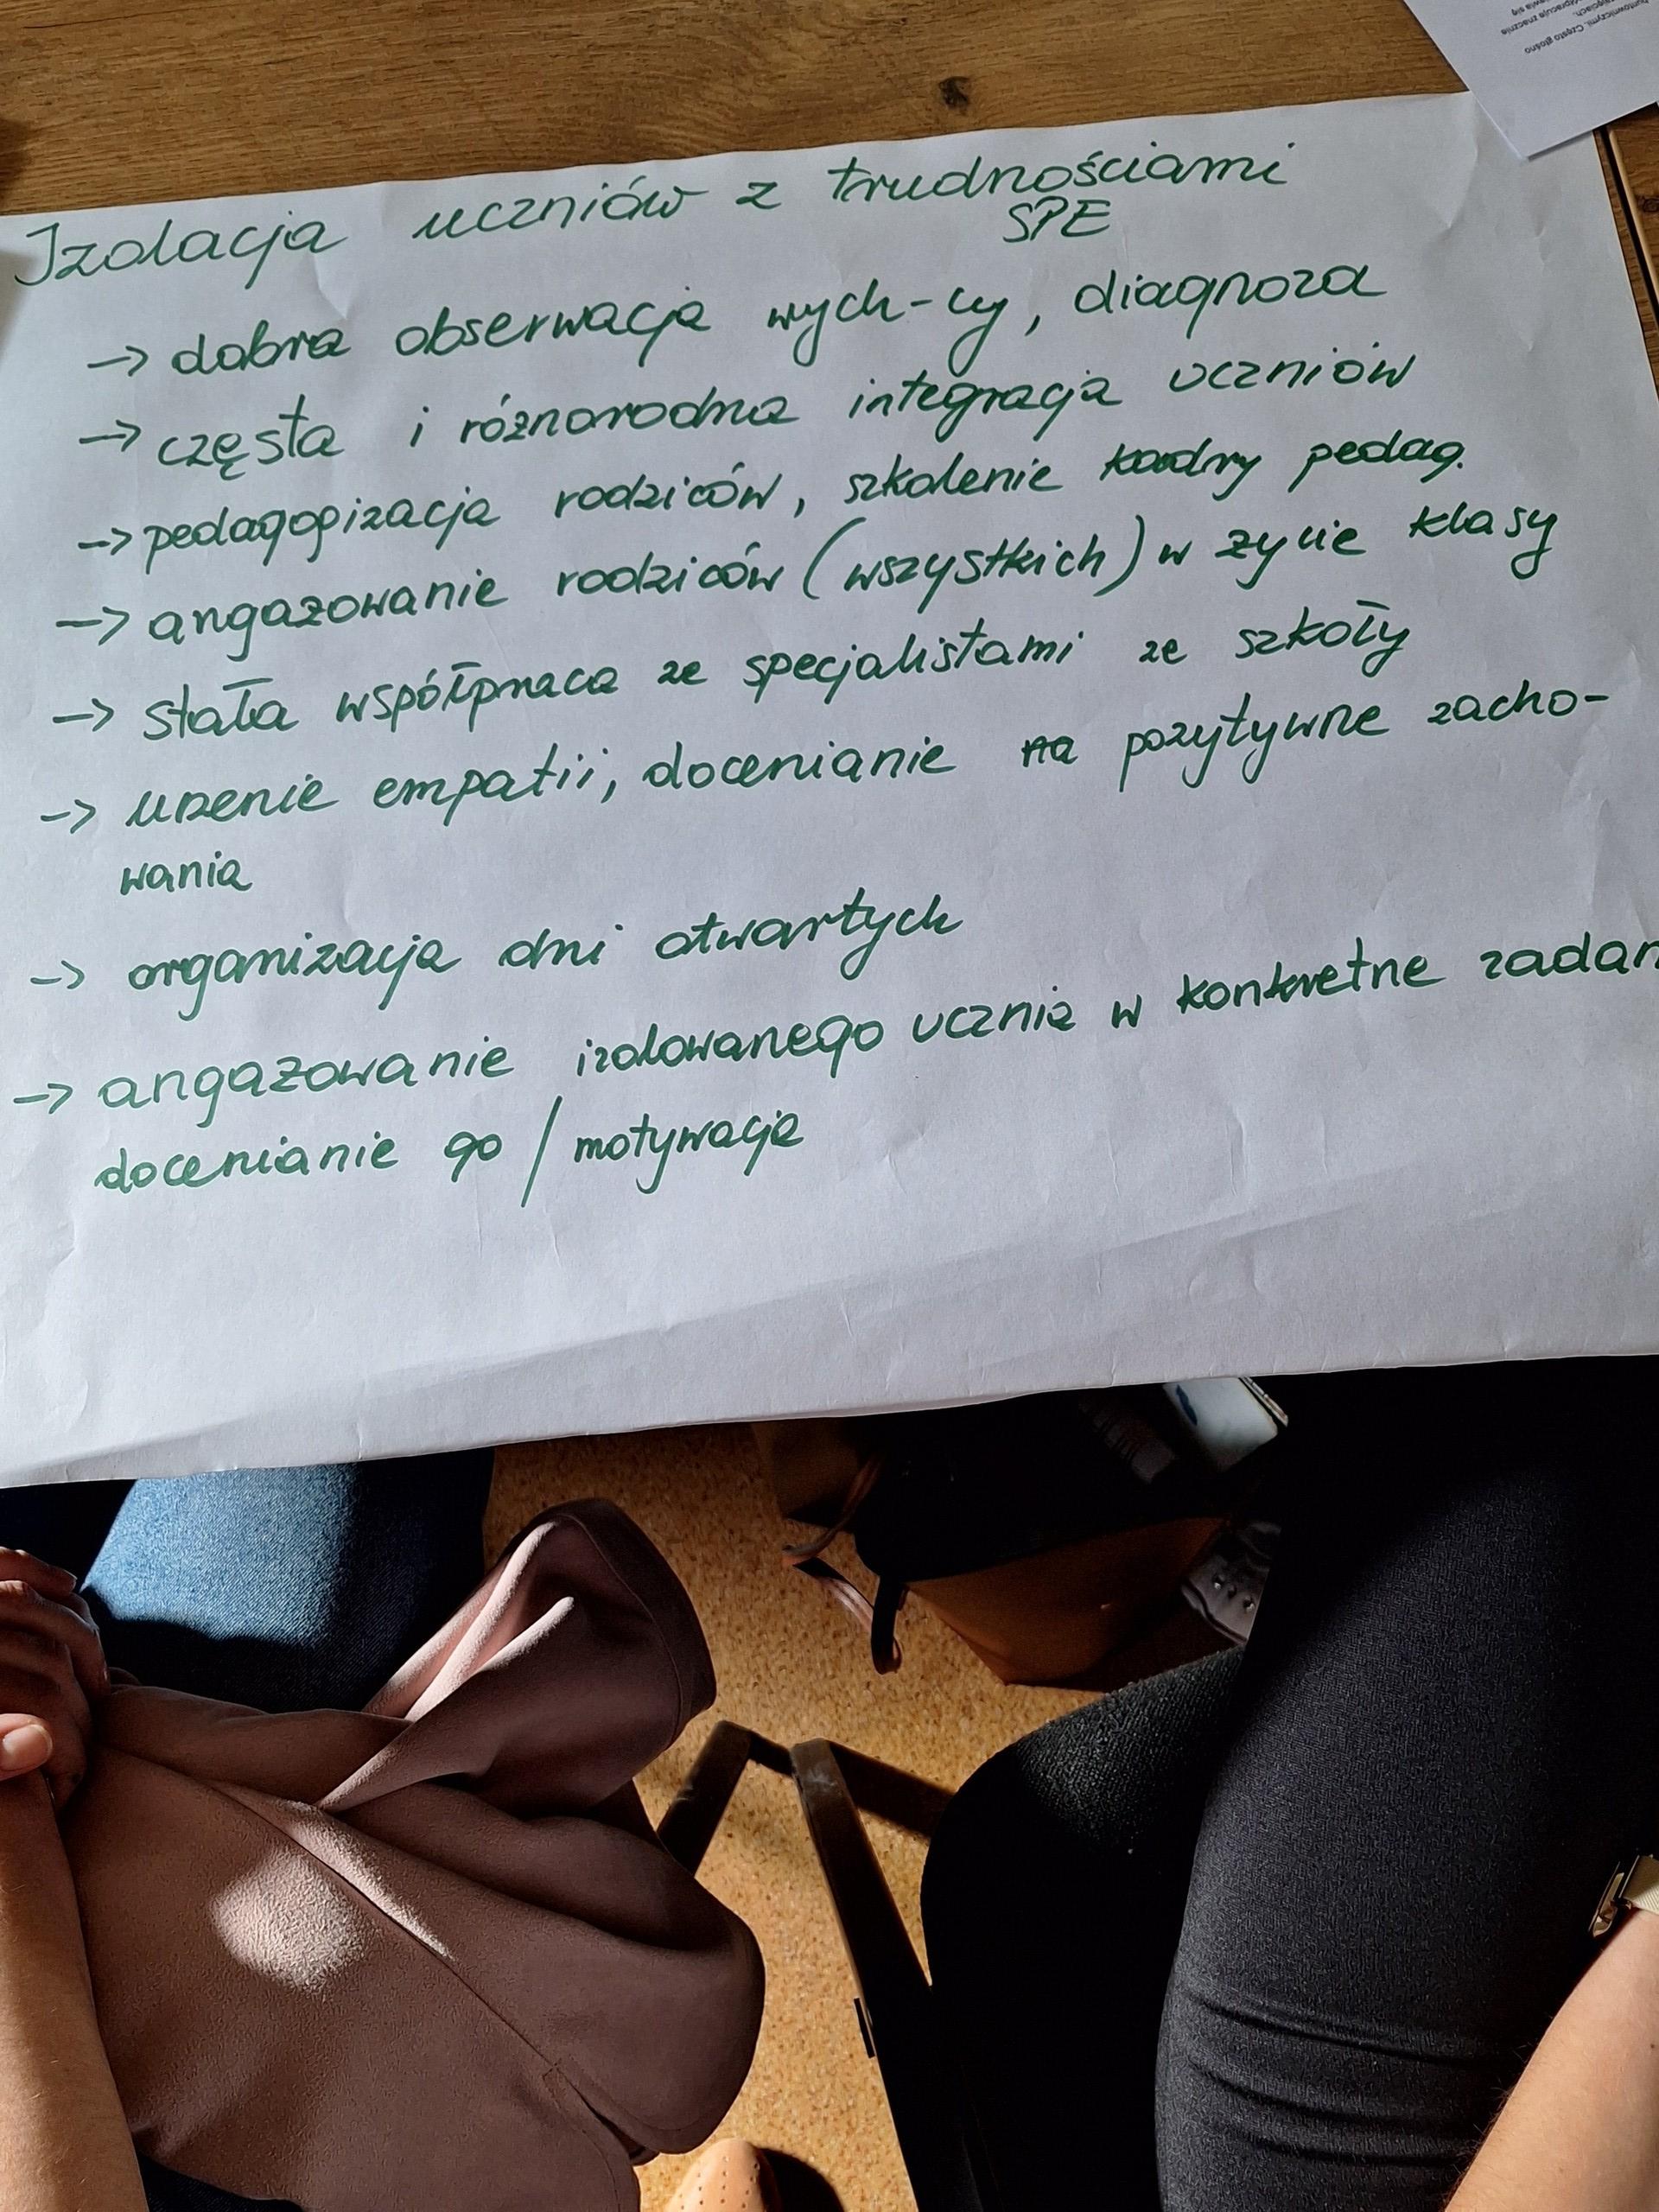 Izolacja uczniów z trudnościami
SPE
-> dobra obserwacja wych-cy, diagnoza
-> częsta i różnorodna integracja uczniów
-> pedagogizacja rodziców, szkolenie kadry pedag.
-> angażowanie rodziców (wszystkich) w życie klasy
-> stała współpraca ze specjalistami ze szkoły
-> uczenie empatii, docenianie na pozytywne zacho-
wania
-> organizacja dni otwartych
-> angażowanie izolowanego ucznia w konkretne zadan
docenianie go / motywacja
Często głośno